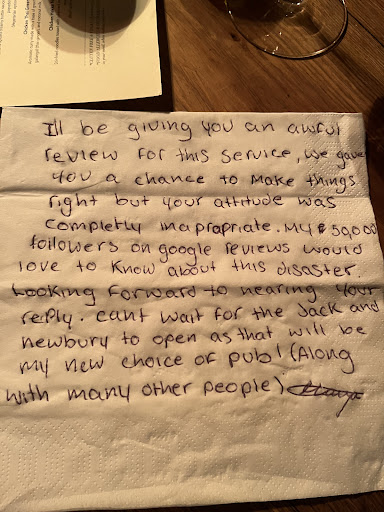 Ill be giving you an awful
review for this service, we gave
you a chance to make things
right but your attitude was
completly inapropriate. My 50,000
followers on google reviews would
love to know about this disaster.
Looking forward to hearing your
reply. cant wait for the Jack and
newbury to open as that will be
my new choice of pub! (Along
with many other people)